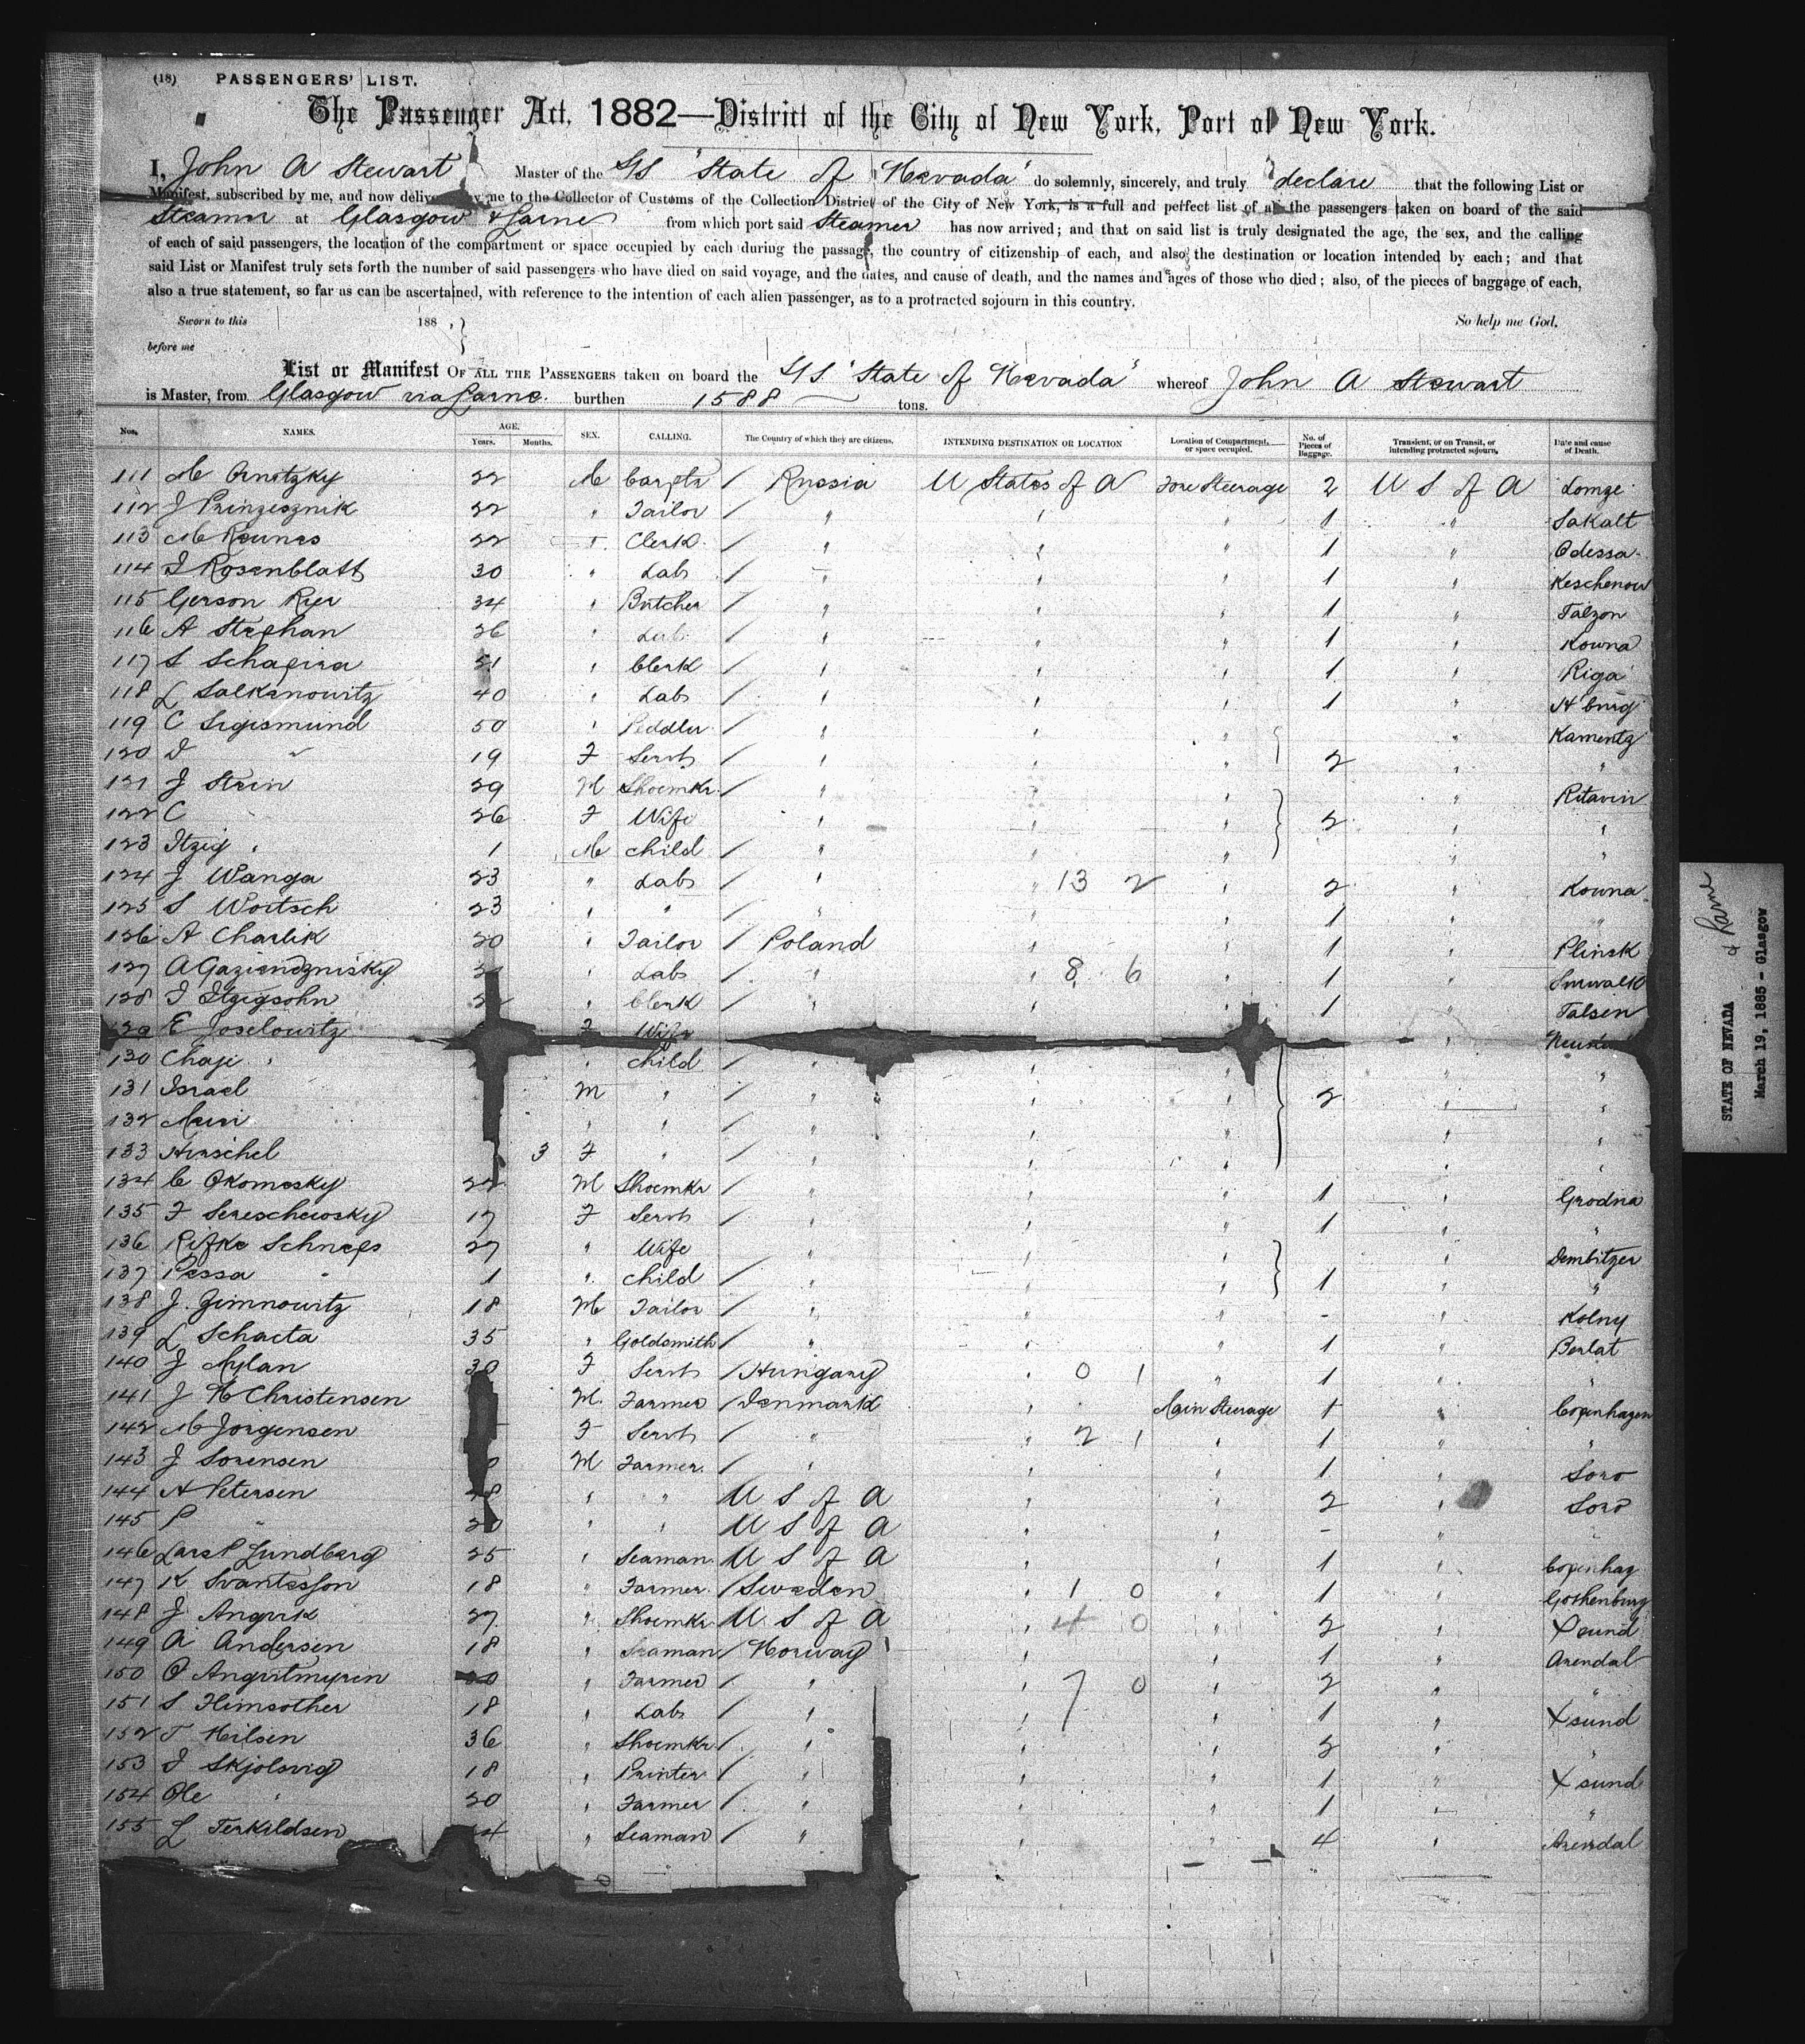 (18) PASSENGERS' LIST.
The Passenger Act, 1882—District of the City of New York, Port of New York.
I, John A Stewart Master of the S/S "State of Nevada" do solemnly, sincerely, and truly declare that the following List or
Manifest, subscribed by me, and now delivered by me to the Collector of Customs of the Collection District of the City of New York, is a full and perfect list of all the passengers taken on board of the said
Steamer at Glasgow & Larne from which port said Steamer has now arrived; and that on said list is truly designated the age, the sex, and the calling
of each of said passengers, the location of the compartment or space occupied by each during the passage, the country of citizenship of each, and also the destination or location intended by each; and that
said List or Manifest truly sets forth the number of said passengers who have died on said voyage, and the dates, and cause of death, and the names and ages of those who died; also, of the pieces of baggage of each,
also a true statement, so far as can be ascertained, with reference to the intention of each alien passenger, as to a protracted sojourn in this country.
Sworn to this 188 , } So help me God,
before me
List or Manifest OF ALL THE PASSENGERS taken on board the S/S "State of Nevada" whereof John A Stewart
is Master, from Glasgow via Larne. burthen 1588 tons.
Nos. NAMES. AGE. Years. Months. SEX. CALLING. The Country of which they are citizens. INTENDING DESTINATION OR LOCATION Location of Compartment, or space occupied. No. of Pieces of Baggage. Transient, or on Transit, or intending protracted sojourn. Date and cause of Death.
111 M 22 M Carptr / Russia U States of A Fore Steerage 2 U S of A Lomze
112 J Prinzesznik 22 " Tailor / " " " 1 " Sakalt
113 M Reunes 22 " Clerk / " " " 1 " Odessa
114 I Rosenblatt 30 " Labr / " " " 1 " Keschenow
115 Gerson Rier 34 " Butcher / " " " 1 " Talzon
116 A Stephan 26 " Labr / " " " 1 " Kowna
117 S Schapira 51 " Clerk / " " " 1 " Riga
118 L Salkanowitz 40 " Labr / " " " 1 " H'burg
119 C Sigismund 50 " Peddler / " " " " Kamentz
120 D " 19 F Servt / " " " 2 " "
121 J Stein 29 M Shoemkr / " " " " Ritavin
122 C 26 F Wife " " " 2 " "
123 Itzig " 1 M child / " " " " "
124 J Wanga 23 " Labr / " " 13 2 " 2 " Kowna
125 S Woitsch 23 " " / " " " 1 " "
126 A Charlik 20 " Tailor / Poland " " 1 " Plinsk
127 A " Labr / " " 8 6 " 1 " Suwalk
128 I Itzigsohn " Clerk / " " " 1 " Talsen
129 E Joselowitz F Wife
130 Chaje " " child / " " " " "
131 Israel M " / " " " 2 " "
132 " " / " " " " "
133 Herschel 3 F " / " " " "
134 C Okomesky 22 M Shoemkr / " " " 1 " Grodna
135 F Sereschewsky 17 F Servt / " " " 1 " "
136 Rifke Schneps 27 " Wife " " " " Dembitzer
137 Pessa " 1 " child / " " " 1 " "
138 J. Zimnowitz 18 M Tailor / " " " - " Kolny
139 L Schacta 35 " Goldsmith / " " " 1 " Berlat
140 J Mylan 30 F Servt / Hungary " 0 1 " 1 " "
141 J H Christensen M. Farmer / Denmark " Main Steerage 1 " Copenhagen
142 M Jorgensen F Servt / " " 2 1 " 1 " "
143 J Sorensen M Farmer / " " " 1 " Soro
144 A Petersen 28 " " U S of A " " 2 " Soro
145 P " 20 " " U S of A " " - "
146 Lars P Lundberg 25 " Seaman U S of A " " 1 " Copenhag
147 K Svantesson 18 " Farmer / Sweden " 1 0 " 1 " Gothenburg
148 J Angvik 27 " Shoemkr U S of A " 4 0 " 2 " Xsund
149 A Andersen 18 " Seaman / Norway " " 1 " Arendal
150 O Angvitmyren 20 " Farmer / " " 7 0 " 2 " "
151 S Himsother 18 " Labr / " " " 1 " Xsund
152 T Nilsen 36 " Shoemkr / " " " 2 " "
153 I Skjolsvig 18 " Printer / " " " 1 " Xsund
154 Ole " 20 " Farmer / " " " 1 " "
155 L Terkildsen " Seaman / " " " 4 " Arendal
STATE OF NEVADA
& Larne
March 19, 1885 - Glasgow